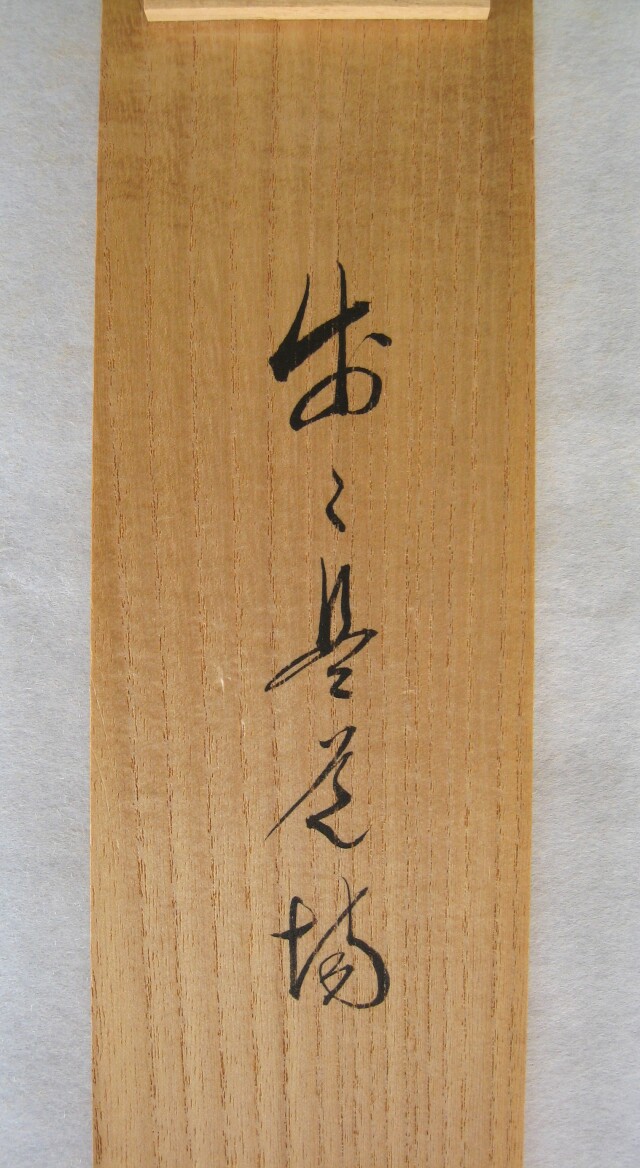 步々是道場